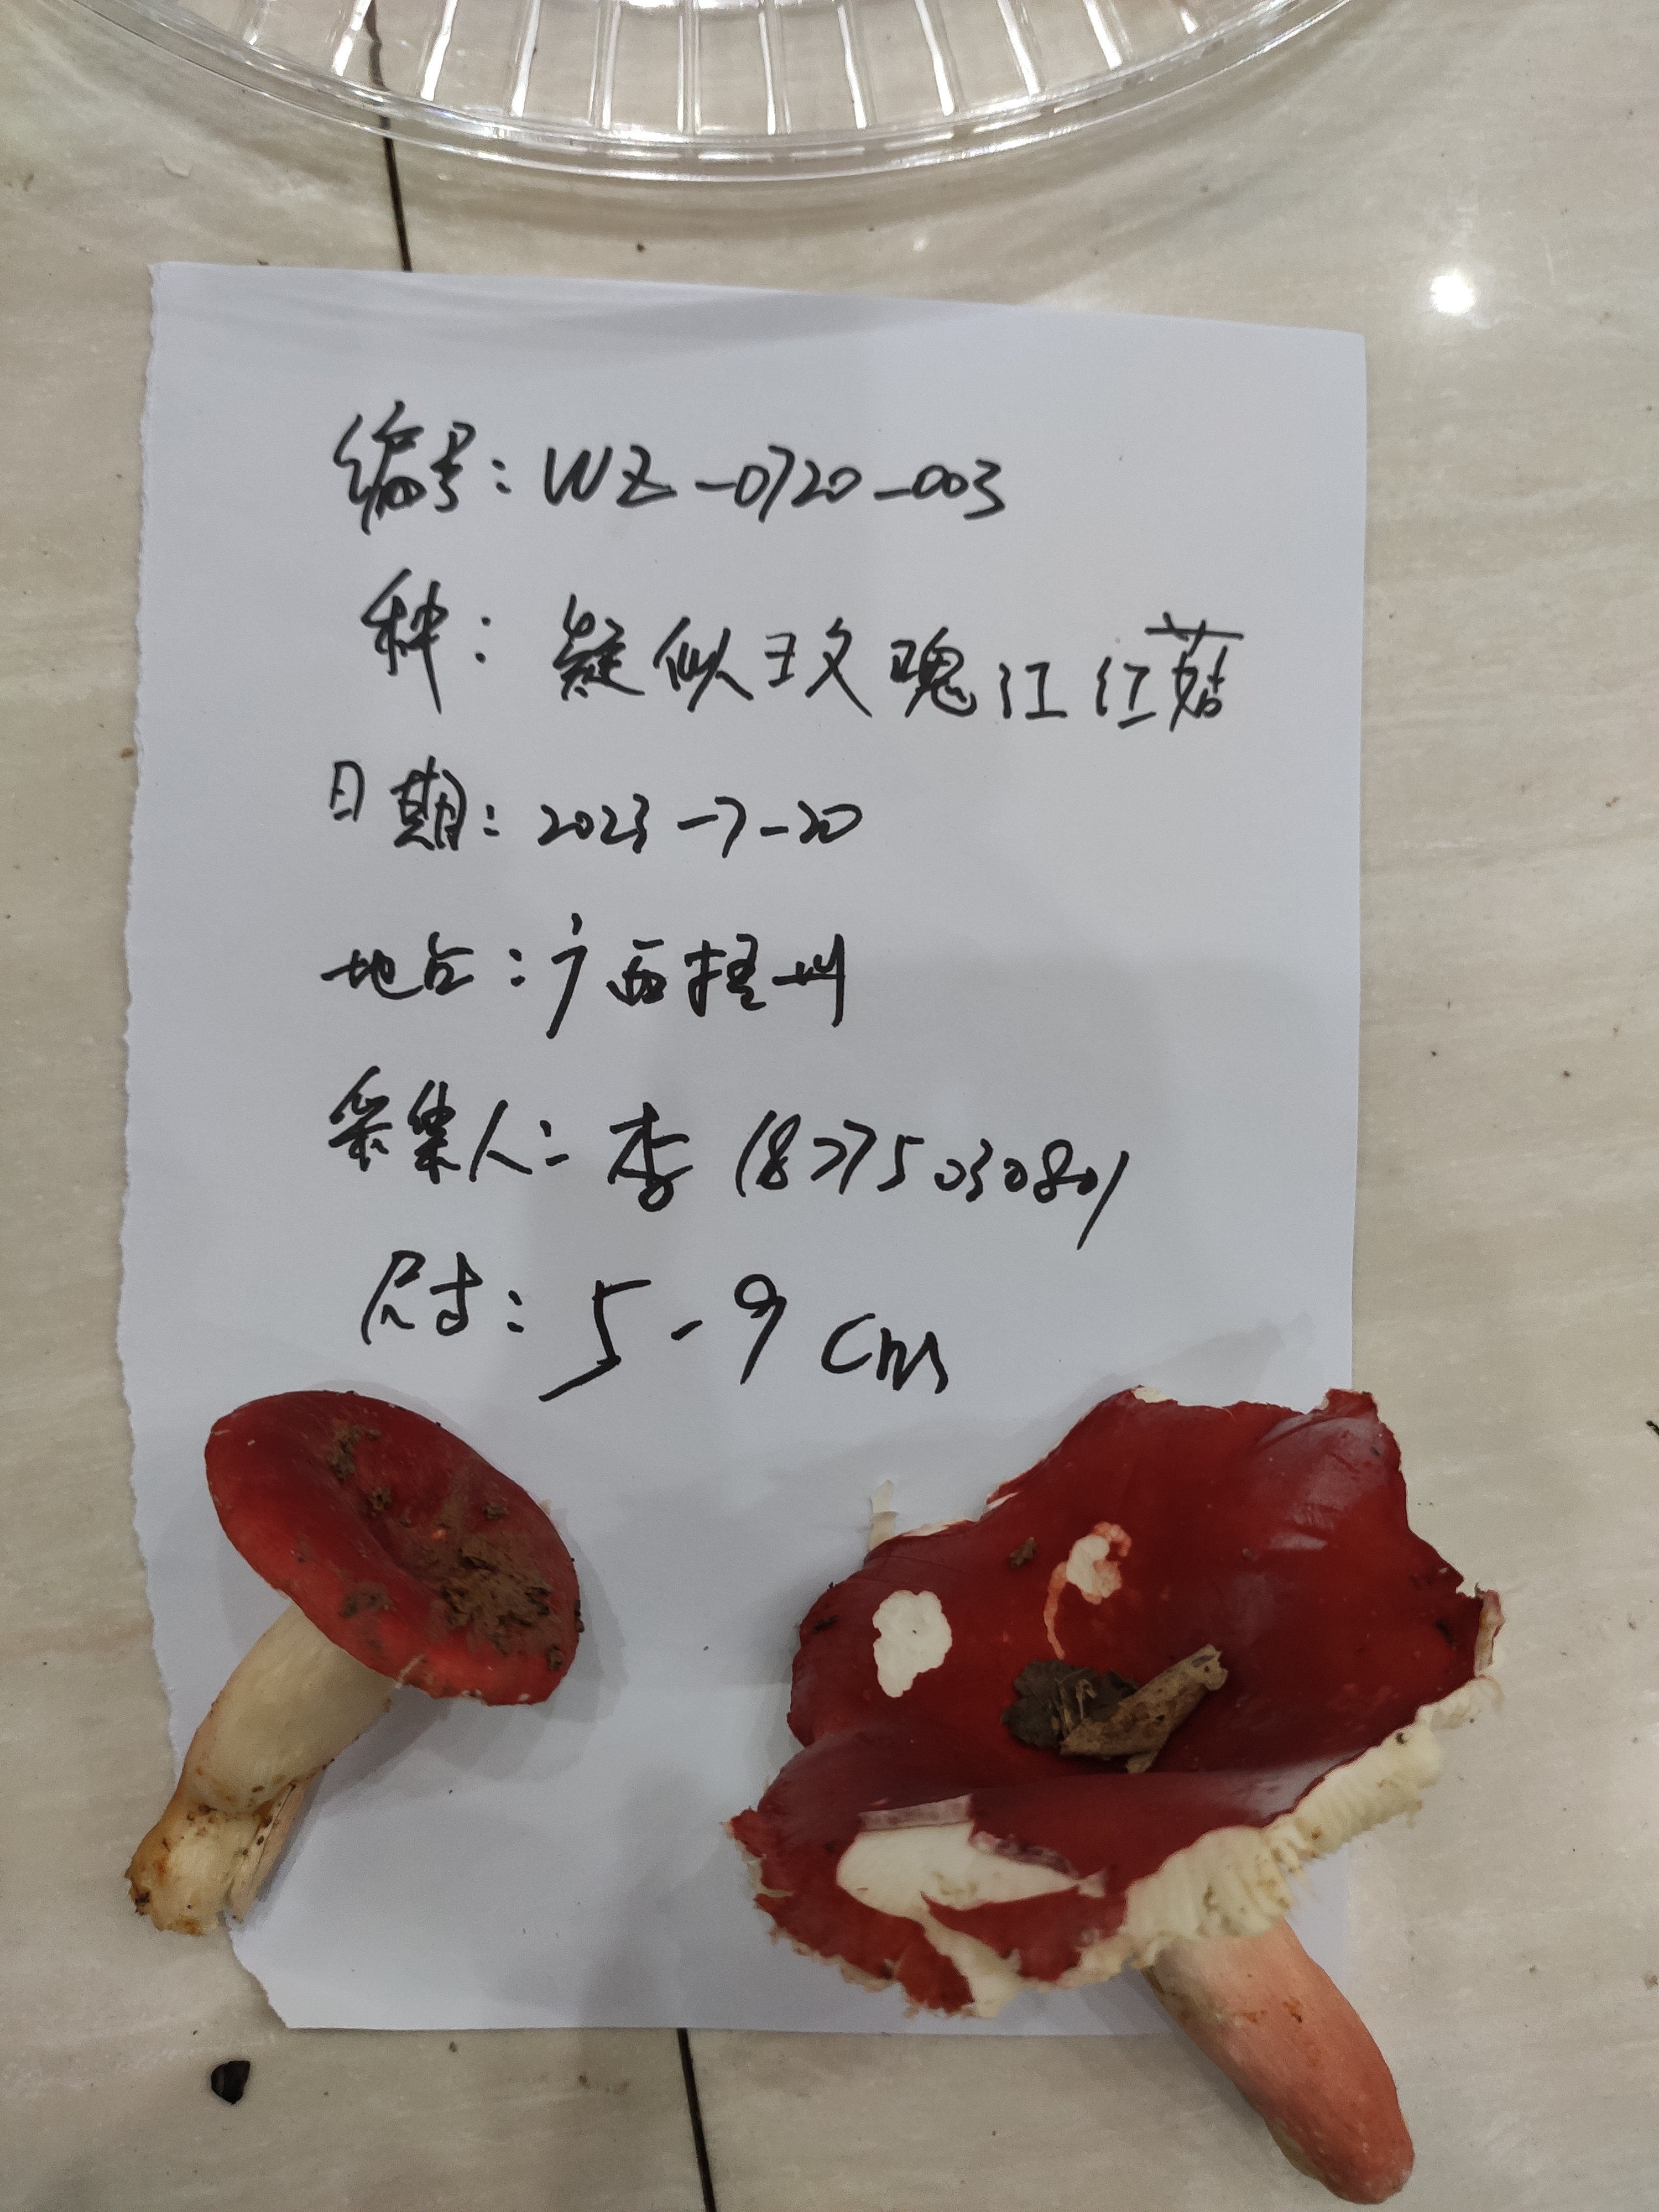 编号: WZ-0720-003
种: 疑似玫瑰江红菇
日期: 2023-7-20
地点: 广西梧州
采集人: 李 18275030801
尺寸: 5-9 cm